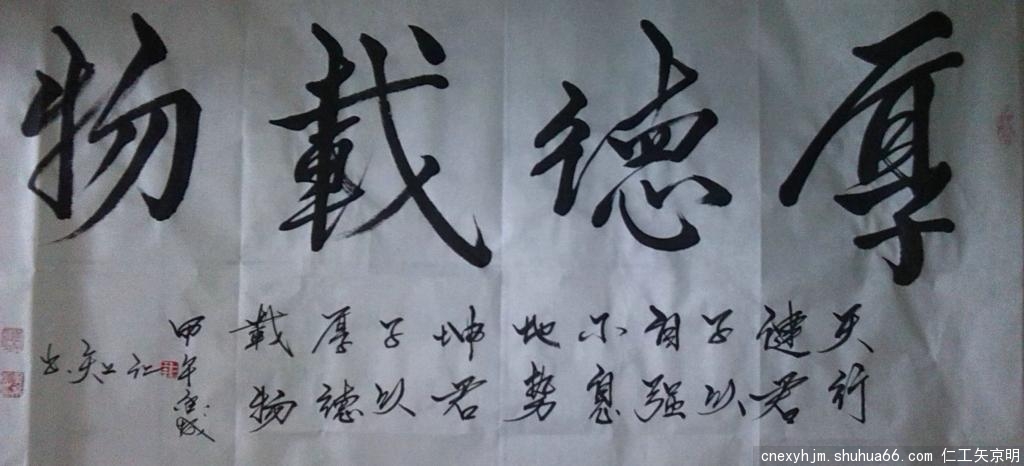 厚德載物
天行
健君
子以
自强
不息
地勢
坤君
子以
厚德
載物
甲午
仁工
书
cnexyhjm.shuhua66.com 仁工矢京明